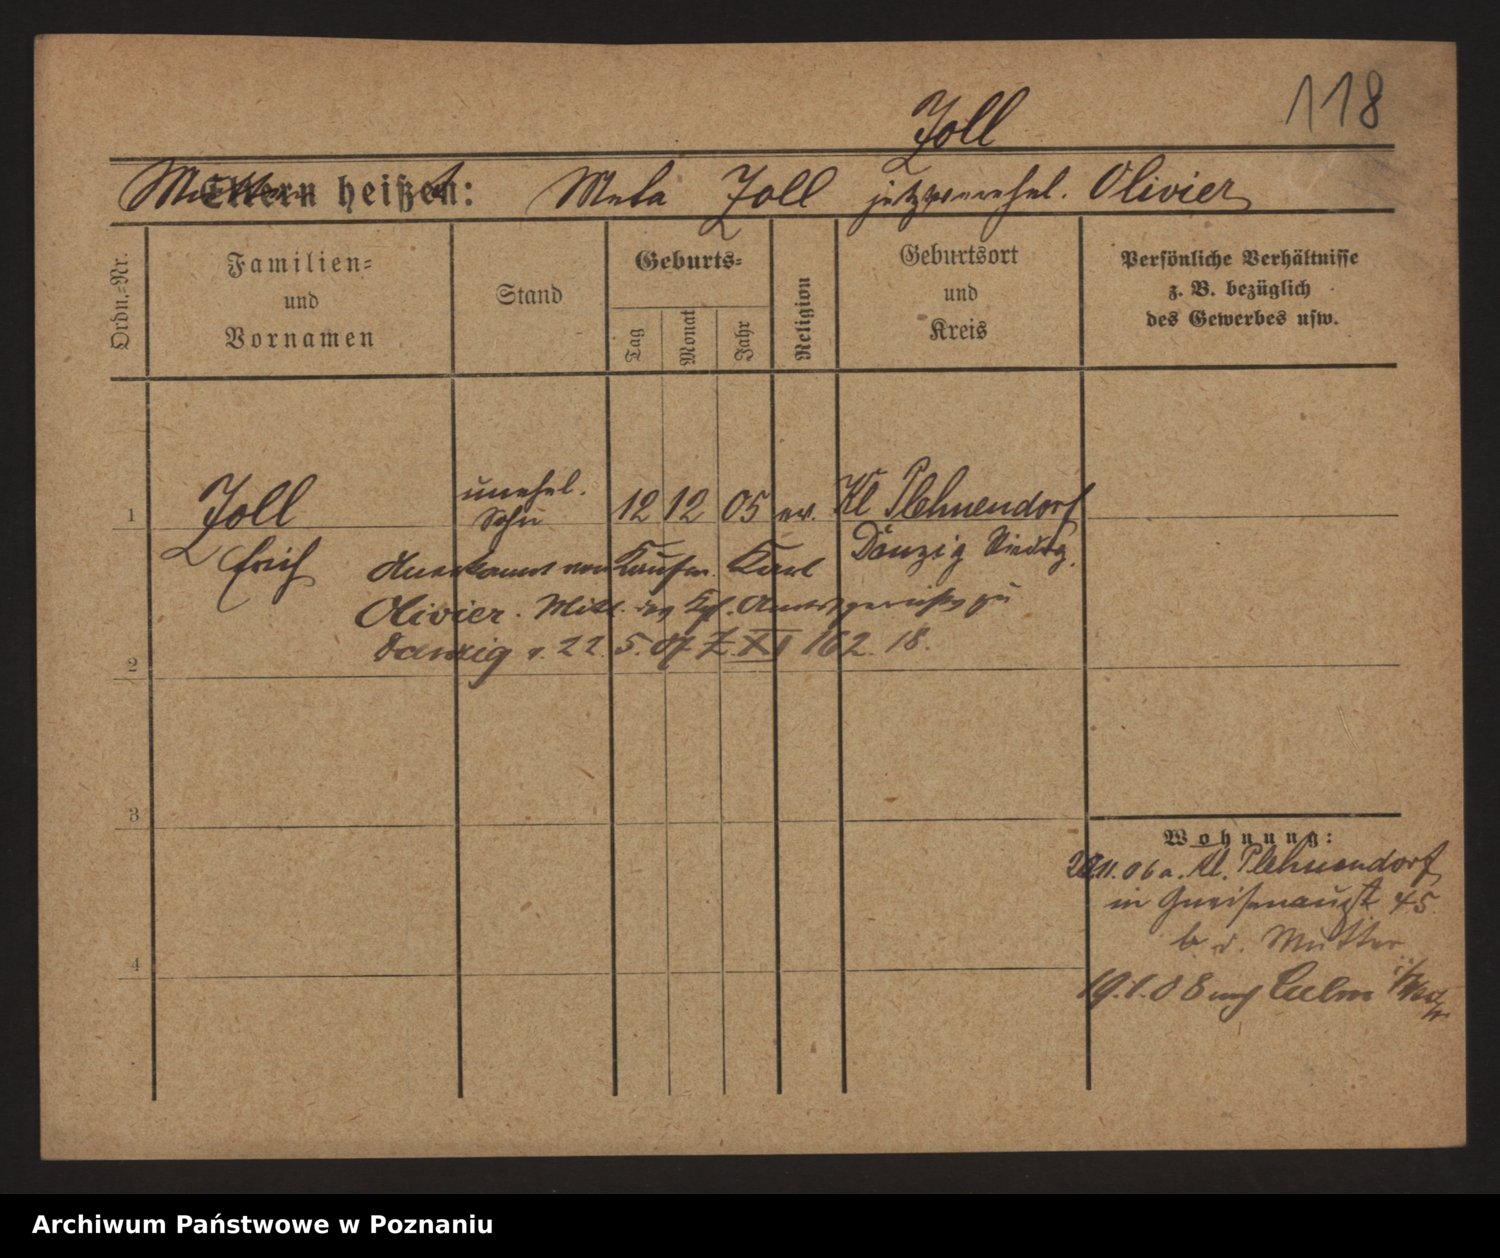 118
Zoll
Mutter heißt: Meta Zoll jetzverehel. Olivier
Ordn.-Nr.
Familien-
und
Vornamen
Stand
Geburts-
Tag
Monat
Jahr
Religion
Geburtsort
und
Kreis
Persönliche Verhältnisse
z. B. bezüglich
des Gewerbes usw.
1
Zoll
Erich
unehel.
Sohn
12 12 05 ev.
Kl Plehnendorf
Danzig Niedrg.
Anerkannt von Kaufm. Karl
Olivier. Mitt. des Kgl. Amtsgerichts zu
Danzig v. 22.5.07 Z. XI 162. 18.
2
3
4
Wohnung:
11.06 a. Kl. Plehnendorf
in Gneisenaust 45
b d. Mutter
19.1.08 nach Culm
Archiwum Państwowe w Poznaniu